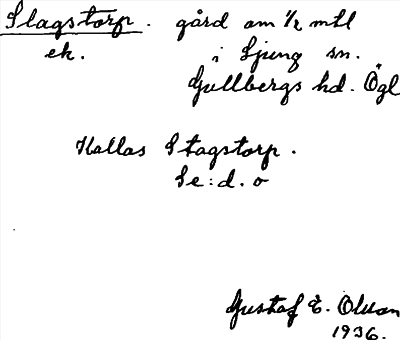 Slagstorp. gård om 1/2 mtl
ek. i Ljung sn.
Gullbergs hd. Ögl
Kallas Stagstorp.
Se: d. o
Gustaf E. Olsson
1936.